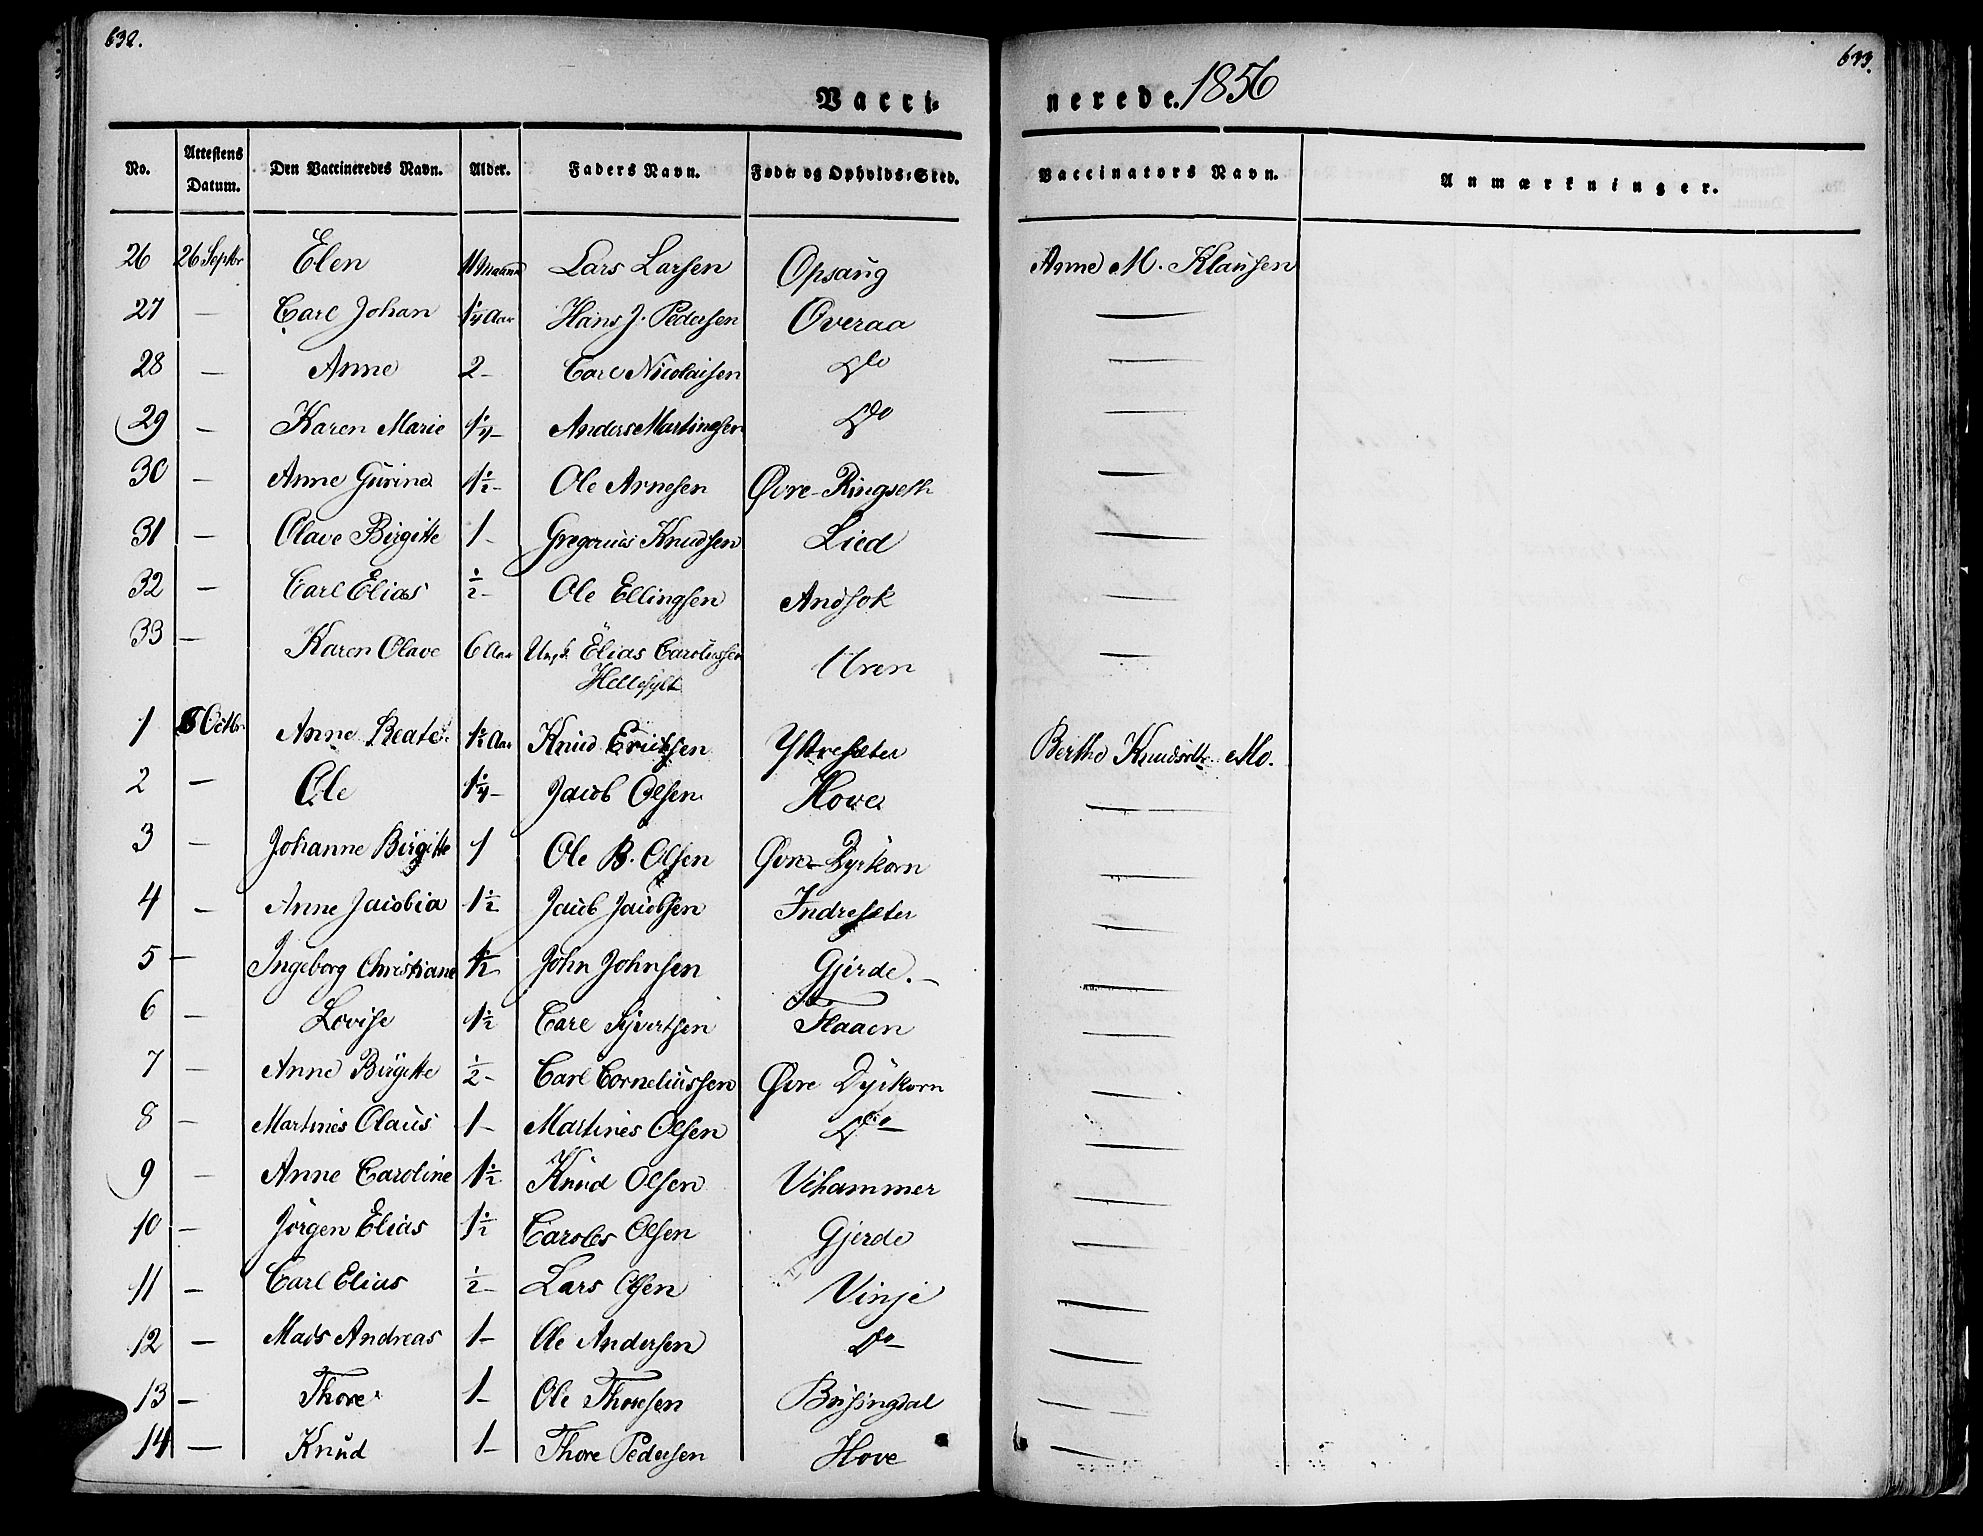 632.
633.
Vacci-
nerede. 1856
No. Attestens Datum. Den Vaccineredes Navn. Alder. Faders Navn. Føde- og Opholds-Sted. Vaccinators Navn. Anmærkninger.
26 26 Septbr Elen 11 Lars Larsen Opsaug Anne M. Klausen
27 — Carl Johan 1 1/4 Aar Hans J. Pedersen Overaa —
28 — Anne 2 – Carl Nicolaisen Do —
29 — Karen Marie 1 1/4 – Anders Martinsen Do —
30 — Anne Gurine 1 1/2 – Ole Arnesen Øvre-Ringseth —
31 — Olave Birgitte 1 – Gregorius Knudsen Lied —
32 — Carl Elias 1/2 – Ole Ellingsen Andsok —
33 — Karen Olave 6 Aar Elias Carolussen Uren —
Hellesylt
1 8 Octbr Anne Beate 1 1/2 Aar Knud Ericksen Ytresæter Berthe Knudsdtr Mo.
2 — Ole 1 1/4 – Jacob Olsen Hove —
3 — Johanne Birgitte 1 Ole B. Olsen Øvre-Dyrkorn —
4 — Anne Jacobia 1 1/2 Jacob Jacobsen Indresæter —
5 — Ingeborg Christiane 1 1/2 John Johnsen Gjerde. – —
6 — Lovise 1 1/2 Carl Sjvertsen Flaaen —
7 — Anne Birgitte 1/2 – Carl Corneliussen Øvre Dyrkorn —
8 — Martines Olaus 1 – Martines Olsen Do —
9 — Anne Caroline 1 1/2 Knud Olsen Vihammer —
10 — Jørgen Elias 1 1/2 Carolus Olsen Gjerde —
11 — Carl Elias 1/2 – Lars Olsen Vinje —
12 — Mads Andreas 1 – Ole Andersen Do —
13 — Thore 1 – Ole Thoresen Brusingdal —
14 — Knud 1 – Thore Pedersen Hove —